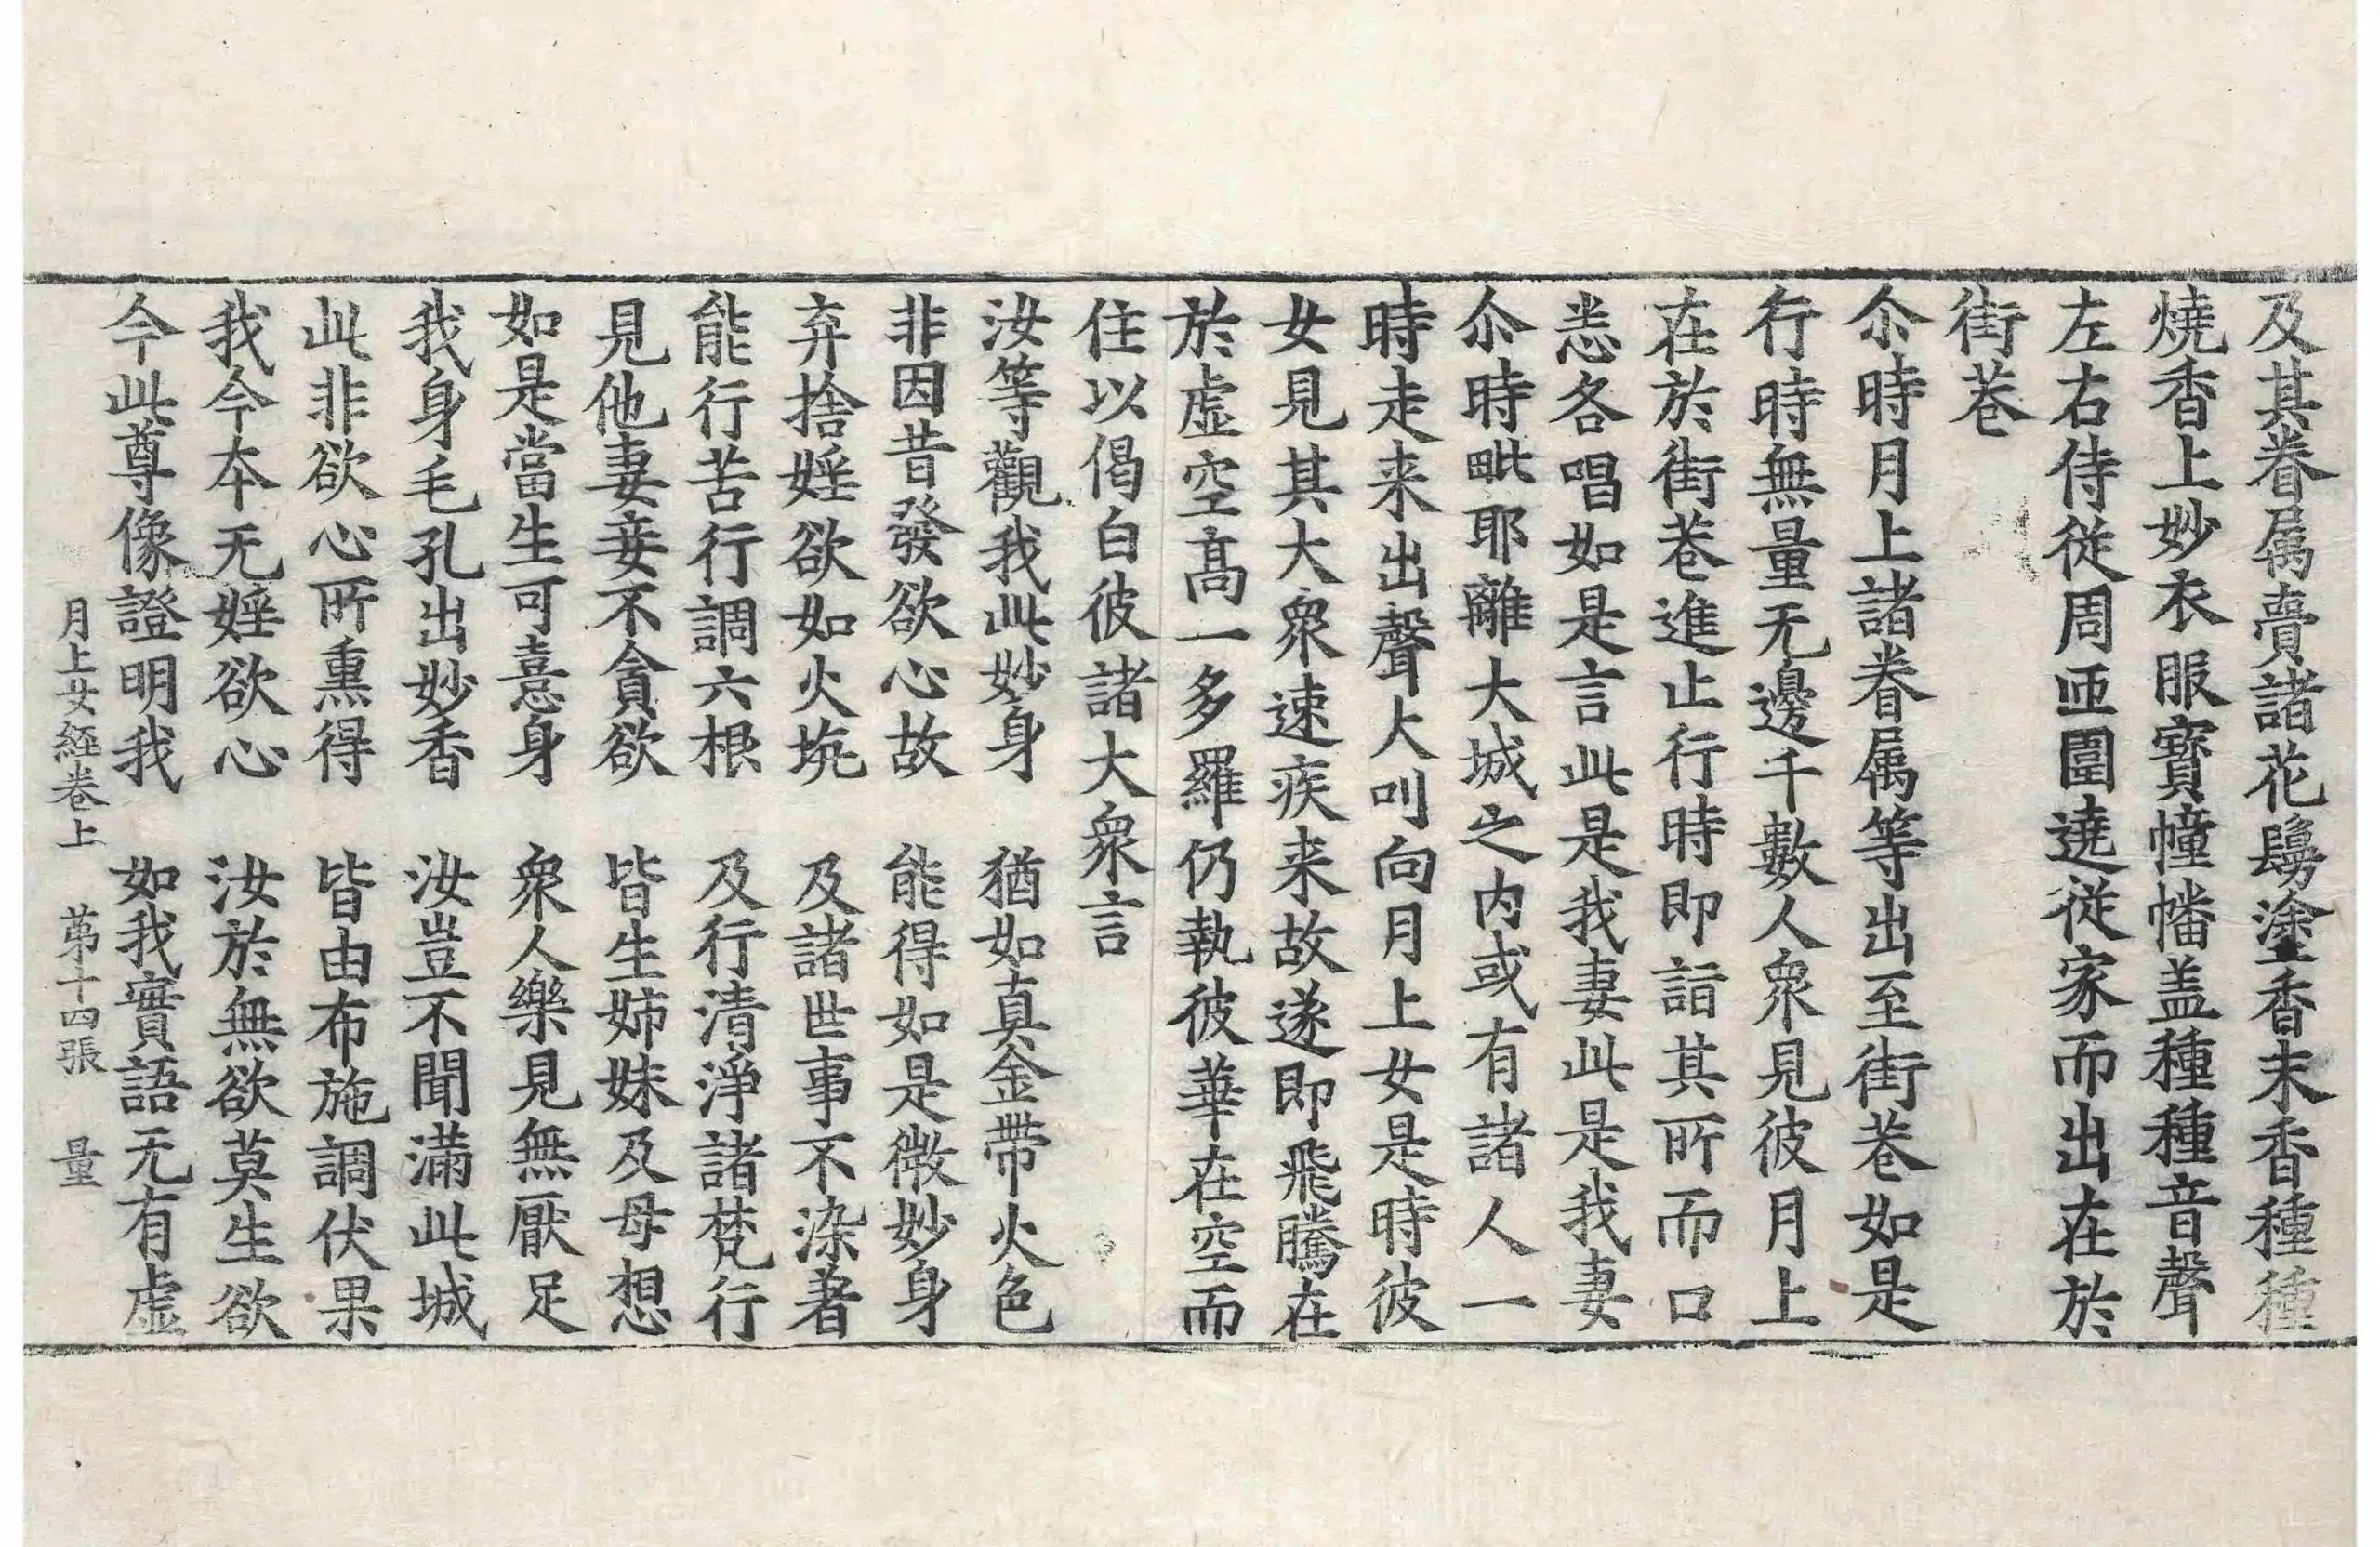 及其眷属賷諸花鬘塗香末香種種
燒香上妙衣服寶幢幡盖種種音聲
左右侍從周匝圍遶從家而出在於
街巷
尒時月上諸眷属等出至街巷如是
行時無量无邊千數人衆見彼月上
在於街巷進止行時即詣其所而口
悉各唱如是言此是我妻此是我妻
尒時毗耶離大城之内或有諸人一
時走来出聲大叫向月上女是時彼
女見其大衆速疾来故遂即飛騰在
於虛空高一多羅仍執彼華在空而
住以偈白彼諸大衆言
汝等觀我此妙身　猶如真金帶火色
非因昔發欲心故　能得如是微妙身
弃捨婬欲如火坑　及諸世事不染著
能行苦行調六根　及行清淨諸梵行
見他妻妾不貪欲　皆生姉妹及母想
如是當生可憙身　衆人樂見無厭足
我身毛孔出妙香　汝豈不聞滿此城
此非欲心所熏得　皆由布施調伏果
我今本无婬欲心　汝於無欲莫生欲
今此尊像證明我　如我實語无有虛
月上女経卷上　苐十四張　量